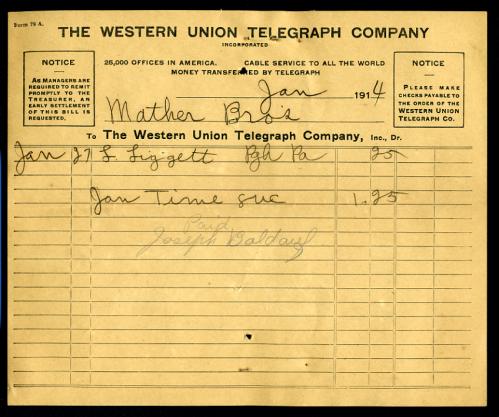 Form 79 A.
THE WESTERN UNION TELEGRAPH COMPANY
INCORPORATED
25,000 OFFICES IN AMERICA. CABLE SERVICE TO ALL THE WORLD
MONEY TRANSFERRED BY TELEGRAPH
NOTICE
AS MANAGERS ARE
REQUIRED TO REMIT
PROMPTLY TO THE
TREASURER, AN
EARLY SETTLEMENT
OF THIS BILL IS
REQUESTED.
NOTICE
PLEASE MAKE
CHECKS PAYABLE TO
THE ORDER OF THE
WESTERN UNION
TELEGRAPH CO.
Jan 1914
Mather Bro's
To The Western Union Telegraph Company, Inc., Dr.
Jan 27 L. Liggett Pgh Pa 25
Jan Time suc 1.25
Paid
Joseph